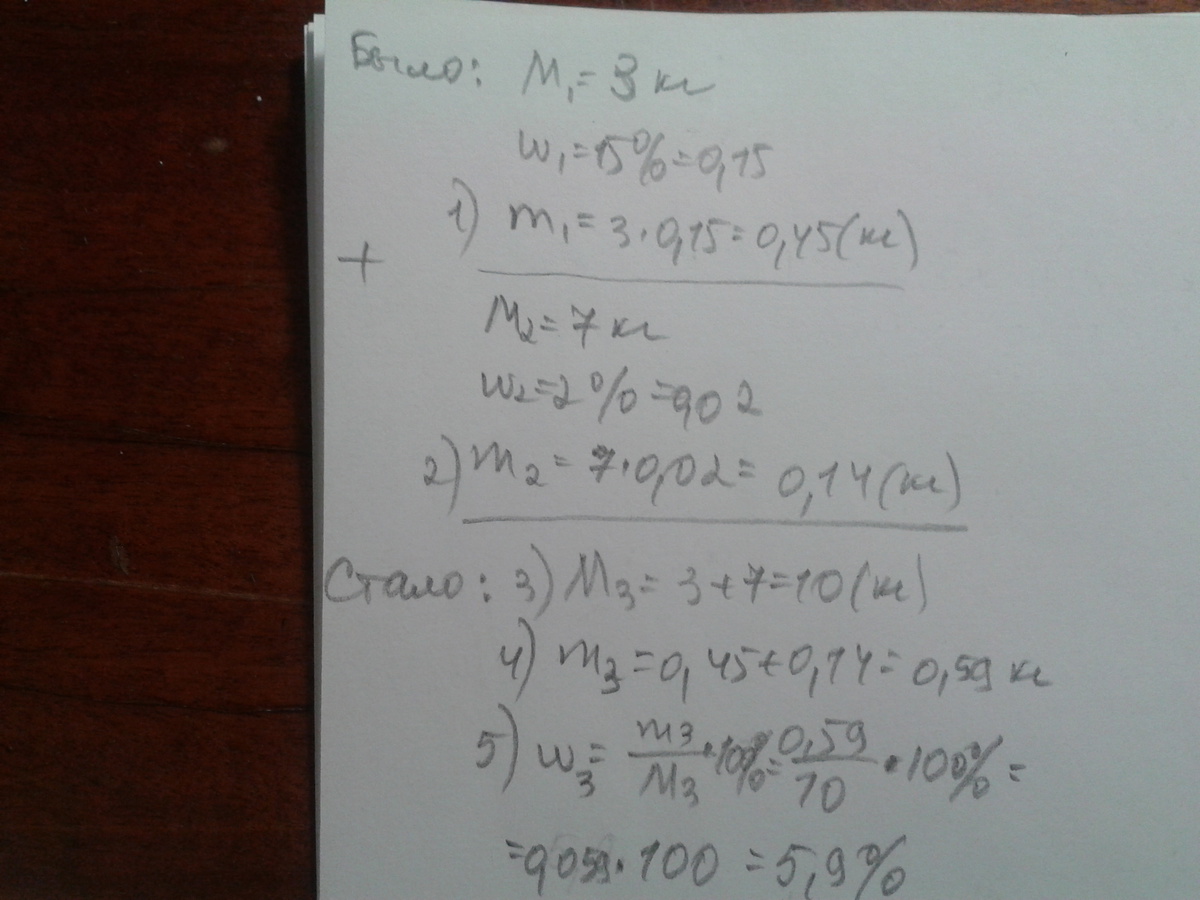 Было: M₁ = 3 кг
w₁ = 15% = 0,15
1) m₁ = 3 · 0,15 = 0,45 (кг)
+
M₂ = 7 кг
w₂ = 2% = 0,02
2) m₂ = 7 · 0,02 = 0,14 (кг)
Стало: 3) M₃ = 3 + 7 = 10 (кг)
4) m₃ = 0,45 + 0,14 = 0,59 кг
5) w₃ = m₃/M₃ · 100% = 0,59/10 · 100% =
= 0,059 · 100 = 5,9%